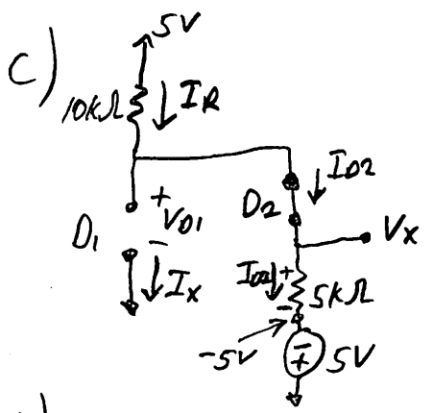 5V
C)
10kΩ
I_R
+
V_D1
-
D1
I_x
D2
I_D2
V_x
I_D2
+
5kΩ
-
-5V
-
+
5V